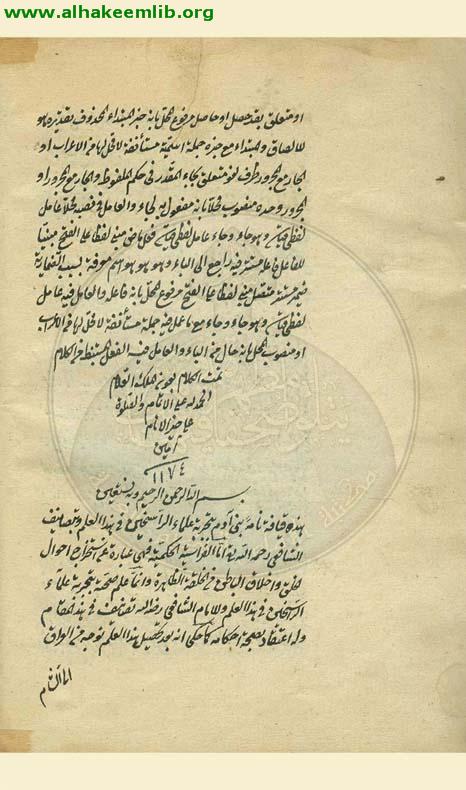 www.alhakeemlib.org
او متعلق بقد حصل او حاصل مرفوع المحل بانه خبر المبتداء المحذوف بتقديره هو
للالصاق والمبتداء مع خبره جملة اسمية مستأنفة لا محل لها من الاعراب او
الجار مع المجرور ظرف لغو متعلق بجاء المقدر في حكم الملفوظ والجار مع المجرور او
المجرور وحده منصوب محلا بانه مفعول به لجاء والعامل في نصبه محلا عامل
لفظي قياسي وهو جاء وجاء عامل لفظي قياسي فعل ماض مبني لفظا على الفتح مبنيا
للفاعل فاعله مستتر فيه راجع الى الباء وهو هو هو اسم معرفة بسبب الضمايرية
ضمير مستتر متصل مبني لفظا على الفتح مرفوع المحل بانه فاعله والعامل فيه عامل
لفظي قياسي وهو جاء وجاء مع ما عمل فيه جملة مستأنفة لا محل لها من الاعراب
او منصوب المحل بانه حال من الباء والعامل فيه الفعل المستنبط من الكلام
تمت الكلام بعون الملك العلام
الحمد لله على الاتمام والصلوة
على خير الانام
آمين
١١٧٤
بسم الله الرحمن الرحيم وبه نستعين
هذه قيافة نامه بني آدم بتجربة علماء الراسخين في هذا العلم وتصانيف
الشافعي رحمه الله اما الفراسة الحكمية فهي عبارة عن استخراج احوال
الخلق واخلاق الباطن من الخلقة الظاهرة وانما علم صحيح بتجربة علماء
الراسخين في هذا العلم وللامام الشافعي رحمه الله تصانيف في هذا المقام
وله اعتقاد بصحة احكامه كما حكى انه بعد تحصيل هذا العلم توجه من العراق
الى الشام